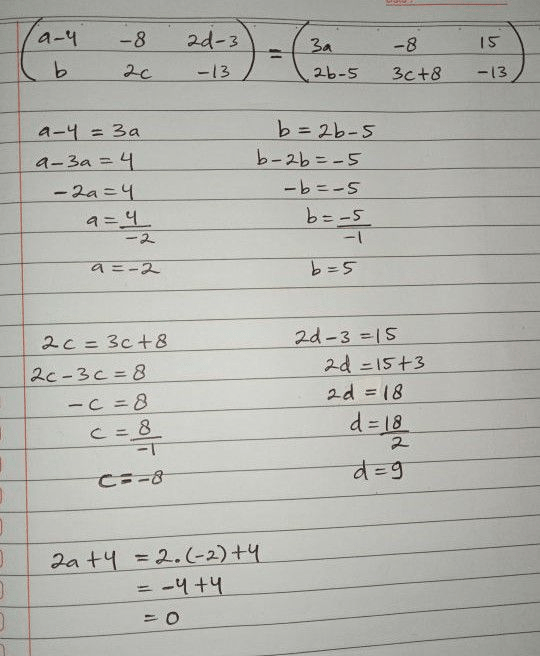 (a-4 -8 2d-3) = (3a -8 15)
(b 2c -13) (2b-5 3c+8 -13)
a-4 = 3a
a-3a = 4
-2a = 4
a = 4/-2
a = -2
b = 2b-5
b-2b = -5
-b = -5
b = -5/-1
b = 5
2c = 3c+8
2c-3c = 8
-c = 8
c = 8/-1
c = -8
2d-3 = 15
2d = 15+3
2d = 18
d = 18/2
d = 9
2a+4 = 2.(-2)+4
= -4+4
= 0